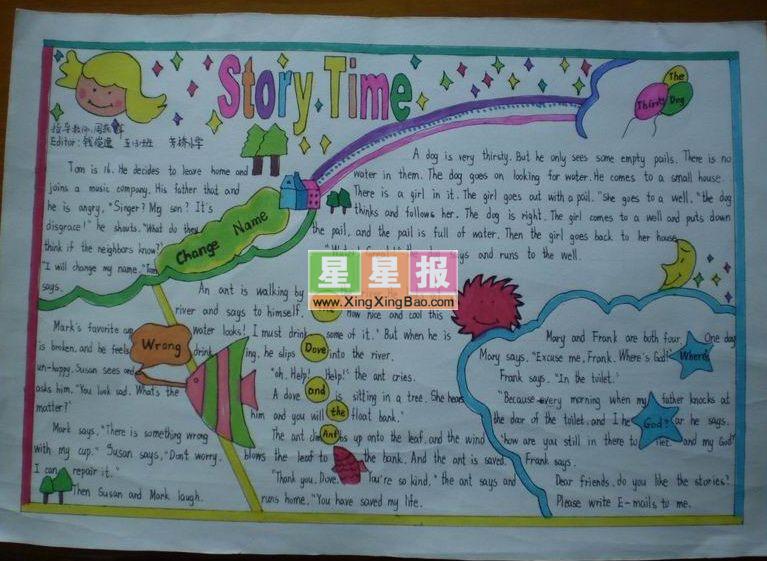 Story Time
The
Thirsty Dog
Editor:
Tom is 16. He decides to leave home and
joins a music company. His father that and
he is angry. "Singer? My son? It's
disgrace!" he shouts. "What do they
think if the neighbors know?"
"I will change my name." Tom
says.
Change Name
A dog is very thirsty. But he only sees some empty pails. There is no
water in them. The dog goes on looking for water. He comes to a small house.
There is a girl in it. The girl goes out with a pail. "She goes to a well." the dog
thinks and follows her. The dog is right. The girl comes to a well and puts down
the pail, and the pail is full of water. Then the girl goes back to her house.
says and runs to the well.
星星报
www.XingXingBao.com
An ant is walking by
river and says to himself. How nice and cool this
water looks! I must drink some of it." But when he is
drinking, he slips into the river.
"oh, Help! Help!" the ant cries.
A dove is sitting in a tree. She hears
him and you will float bank."
The ant climbs up onto the leaf, and the wind
blows the leaf to the bank. And the ant is saved.
"Thank you, Dove. You're so kind," the ant says and
runs home. "You have saved my life.
The
Dove
and
the
Ant
Mark's favorite cup
is broken, and he feels
un-happy. Susan sees and
asks him. "You look sad. What's the
matter?"
Mark says, "There is something wrong
with my cup." Susan says, "Don't worry.
I can repair it."
Then Susan and Mark laugh.
Wrong
Mary and Frank are both four. One day
Mary says. "Excuse me, Frank. Where's God?"
Frank says. "In the toilet."
"Because every morning when my father knocks at
the door of the toilet, and I hear he says.
"how are you still in there to my God?"
Frank says.
Where's
God?
Dear friends, do you like the stories?
Please write E-mails to me.